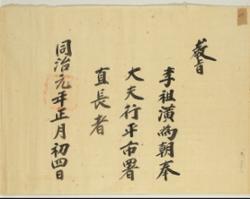 敎旨
李祖潢爲朝奉
大夫行平市署
直長者
同治元年正月初四日